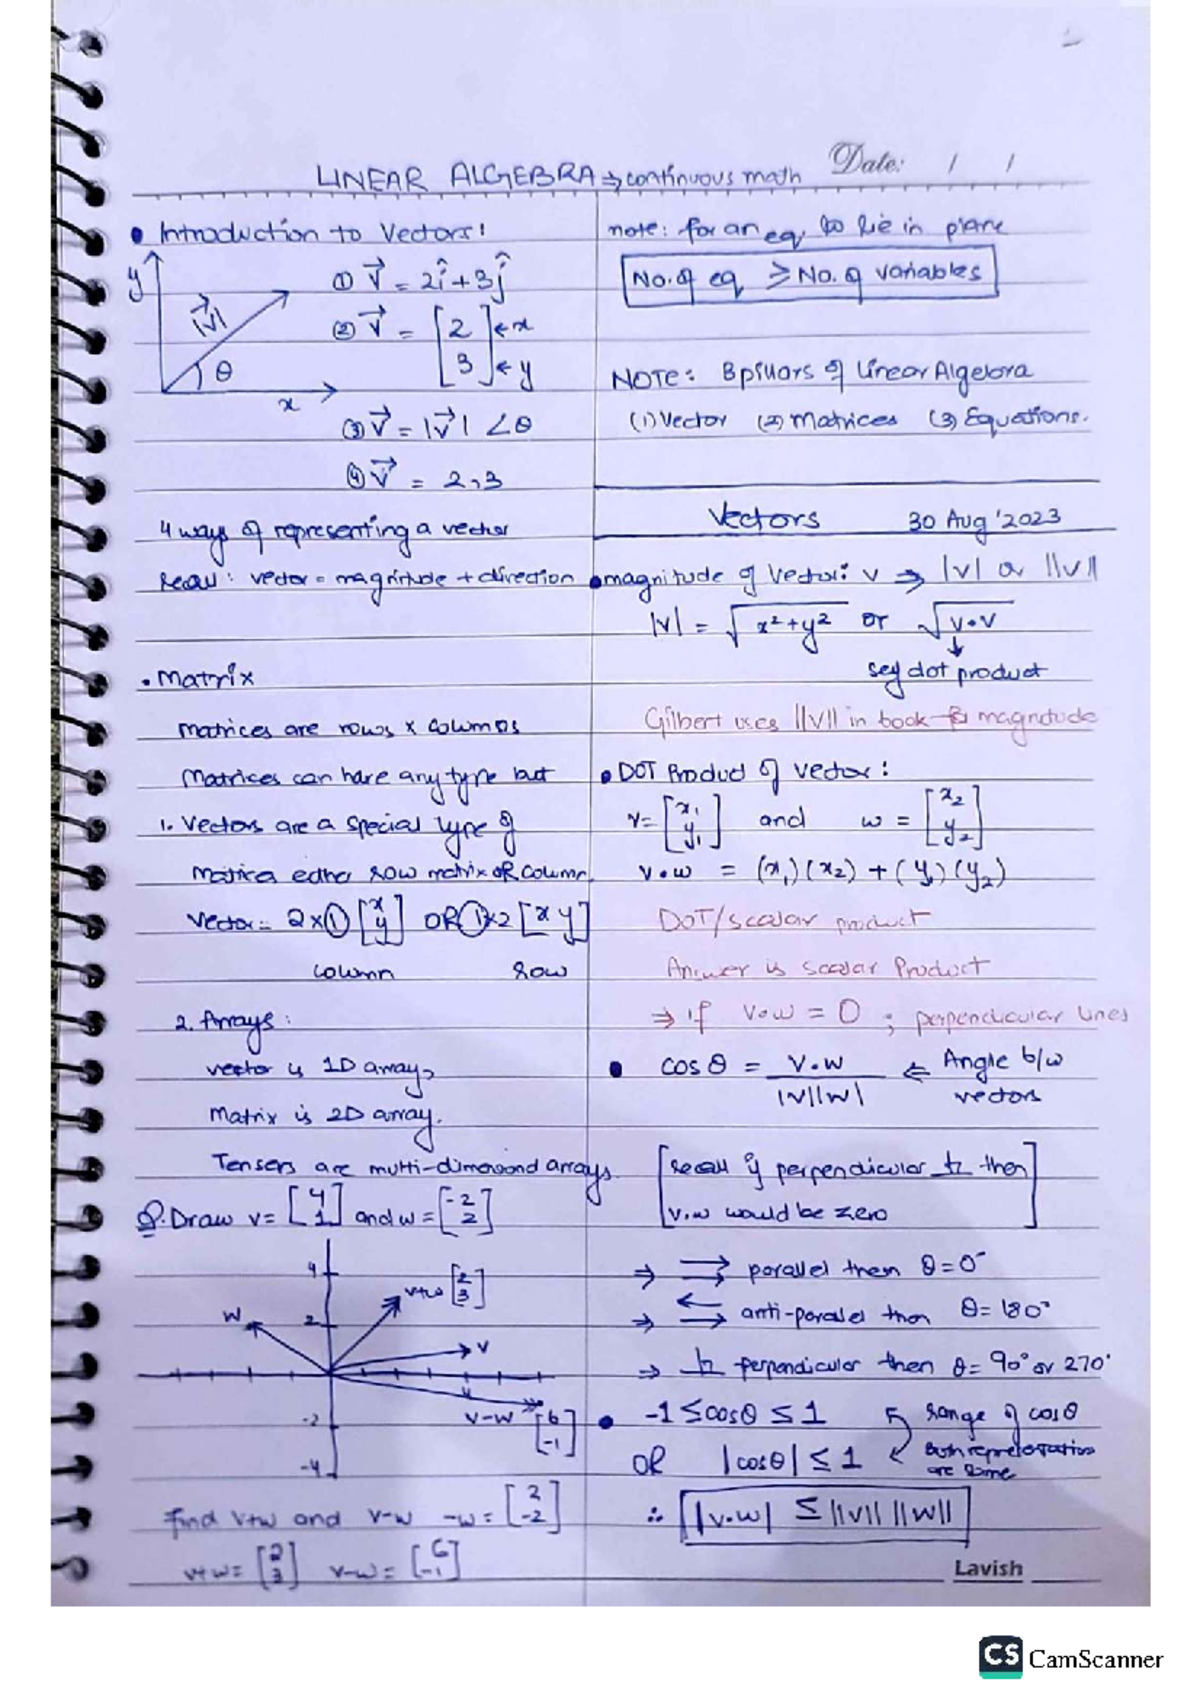 LINEAR ALGEBRA ⇒ continuous math Date: / /
• Introduction to Vectors!
y
|v⃗|
θ
x
① v⃗ = 2î + 3ĵ
② v⃗ = [2 3] ← x ← y
③ v⃗ = |v⃗| ∠θ
④ v⃗ = 2,3
4 ways of representing a vector
Recall: vector = magnitude + direction
• Matrix
Matrices are rows x columns
Matrices can have any type but
1. Vectors are a special type of
Matrices either row matrix OR column.
Vector = 2×① [x y] OR ①×2 [x y]
column row
2. Arrays:
vector is 1D array,
Matrix is 2D array.
Tensers are multi-dimensional arrays.
Q. Draw v = [4 1] and w = [-2 2]
4
v+w [2 3]
w
2
v
4
v-w [6 -1]
-2
-4
Find v+w and v-w -w = [2 -2]
v+w = [2 3] v-w = [6 -1]
note: for an eq. to lie in plane
No. of eq ≥ No. of variables
NOTE: 3 pillars of Linear Algebra
(1) Vector (2) Matrices (3) Equations.
Vectors 30 Aug '2023
• magnitude of Vector: v ⇒ |v| or ||v||
|v| = √x²+y² or √v•v
dot product
Gilbert uses ||v|| in book magnitude
• DOT Product of vector:
v = [x₁ y₁] and w = [x₂ y₂]
v•w = (x₁)(x₂) + (y₁)(y₂)
DOT/scalar product
Answer is scalar Product
⇒ if v•w = 0 ; perpendicular lines
• cos θ = v•w / |v||w| ⇐ Angle b/w vectors
[Recall if perpendicular then
v.w would be zero]
⇒ parallel then θ = 0°
⇒ anti-parallel then θ = 180°
⇒ perpendicular then θ = 90° or 270°
• -1 ≤ cosθ ≤ 1 range of cosθ
OR |cosθ| ≤ 1 both representation are same
∴ |v•w| ≤ ||v|| ||w||
Lavish
CS CamScanner